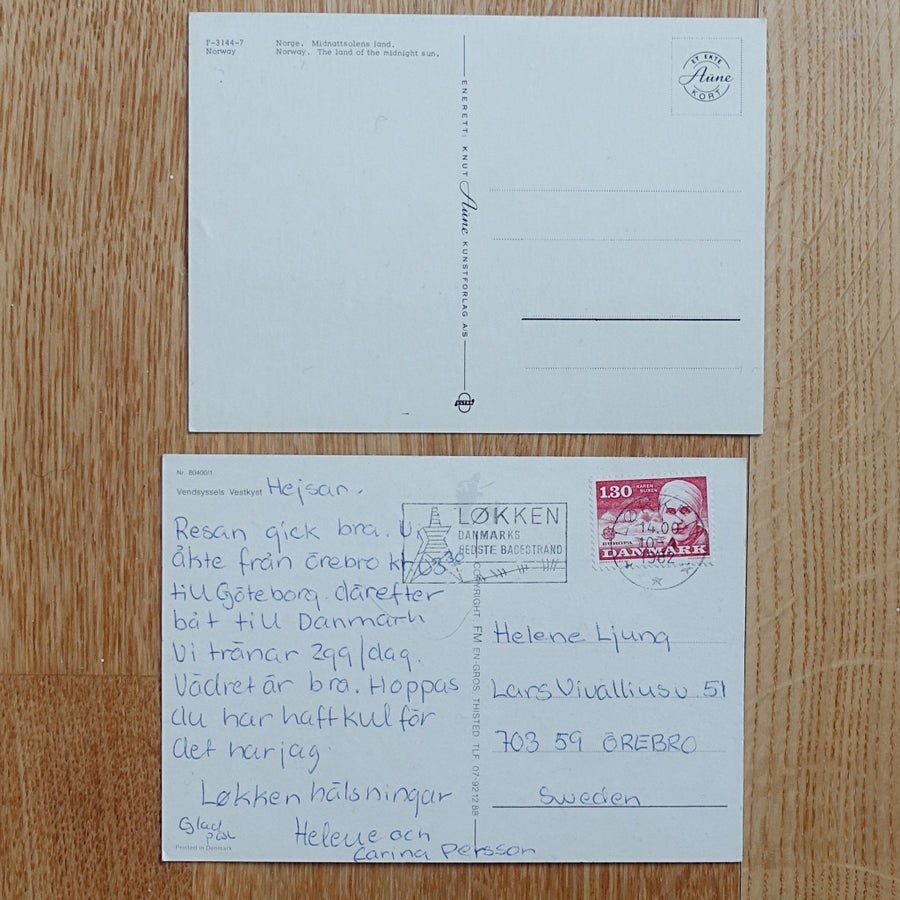 F-3144-7
Norway
Norge. Midnattsolens land.
Norway. The land of the midnight sun.
ENERETT: KNUT Aüne KUNSTFORLAG A/S
ULTRA
ET EKTE
Aüne
KORT
Nr. 80400/1
Vendsyssels Vestkyst
Hejsan.
Resan gick bra. Vi
åkte från örebro kl. 03.30
till Göteborg. därefter
båt till Danmark
Vi tränar 2gg/dag.
Vädret är bra. Hoppas
du har haft kul för
det har jag
Løkken hälsningar
Helene och
Carina Persson
Glad
Printed in Denmark
LØKKEN
DANMARKS
BEDSTE BADESTRAND
COPYRIGHT: FM EN-GROS THISTED TLF 07-92 12 88
1.30
KAREN
BLIXEN
EUROPA
DANMARK
14.00
1982
Helene Ljung
Lars Vivallius v 51
703 59 ÖREBRO
Sweden